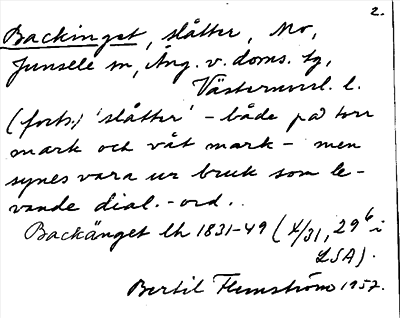 2.
Backinget, slåtter, Mo,
Junsele sn, Ång. v. doms. sg,
Västernorrl. l.
(forts.) 'slåtter' - både på torr
mark och våt mark - men
synes vara ur bruk som le-
vande dial.-ord..
Backänget lh 1831-49 (4/31, 29⁶ i
LSA).
Bertil Flemström 1957.